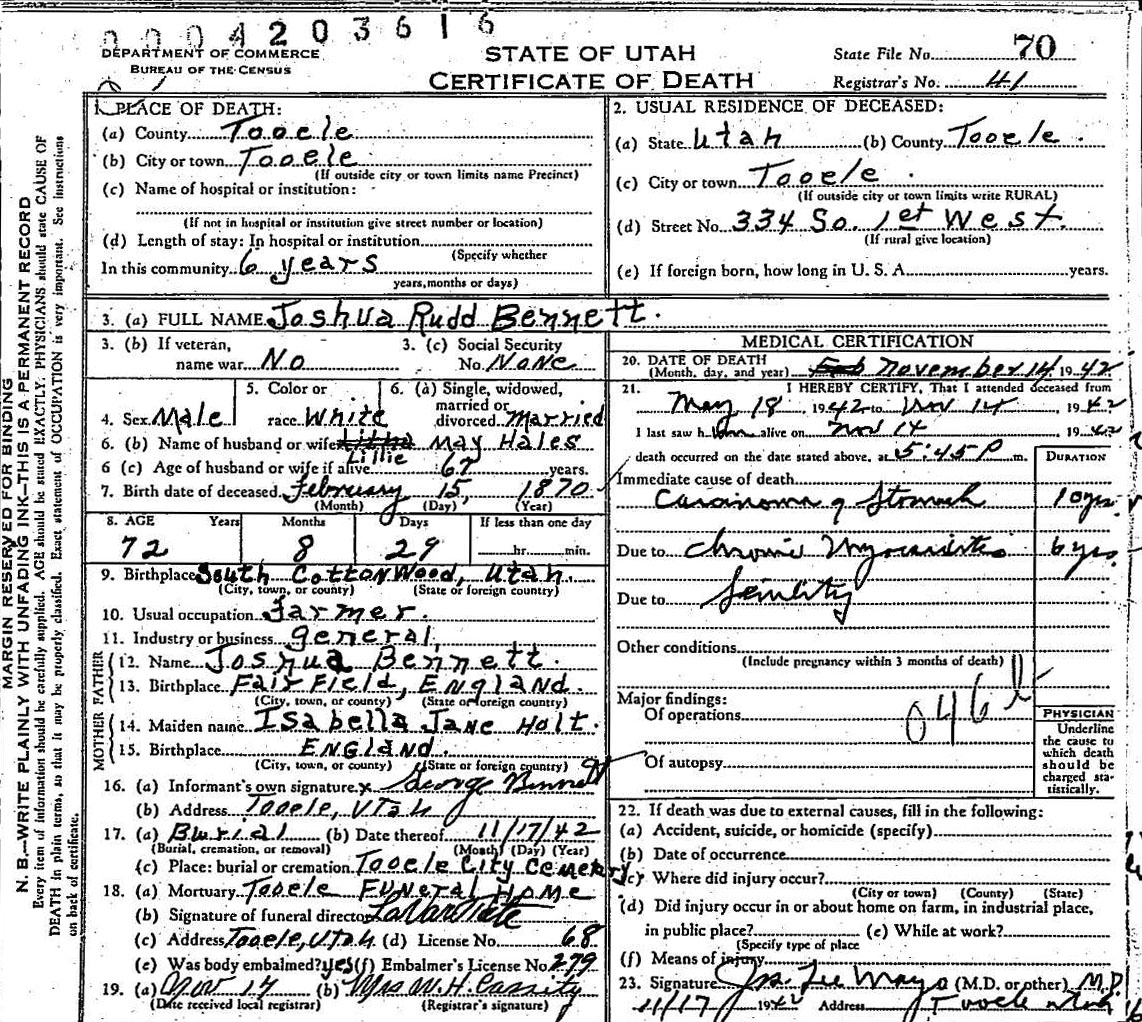 0004203616
DEPARTMENT OF COMMERCE
BUREAU OF THE CENSUS
STATE OF UTAH
CERTIFICATE OF DEATH
State File No. 70
Registrar's No. 41
MARGIN RESERVED FOR BINDING
N. B.—WRITE PLAINLY WITH UNFADING INK—THIS IS A PERMANENT RECORD
Every item of information should be carefully supplied. AGE should be stated EXACTLY. PHYSICIANS should state CAUSE OF
DEATH in plain terms, so that it may be properly classified. Exact statement of OCCUPATION is very important. See instructions
on back of certificate.
1. PLACE OF DEATH:
(a) County Tooele
(b) City or town Tooele
(If outside city or town limits name Precinct)
(c) Name of hospital or institution:
(If not in hospital or institution give street number or location)
(d) Length of stay: In hospital or institution
(Specify whether
In this community 6 years
years, months or days)
2. USUAL RESIDENCE OF DECEASED:
(a) State Utah (b) County Tooele.
(c) City or town Tooele.
(If outside city or town limits write RURAL)
(d) Street No. 334 So. 1st West.
(If rural give location)
(e) If foreign born, how long in U. S. A. years.
3. (a) FULL NAME Joshua Rudd Bennett.
3. (b) If veteran,
name war No
3. (c) Social Security
No. None
4. Sex Male
5. Color or
race White
6. (a) Single, widowed,
married or
divorced Married
6. (b) Name of husband or wife Lillie May Hales
6 (c) Age of husband or wife if alive 62 years.
7. Birth date of deceased February 15, 1870
(Month) (Day) (Year)
8. AGE Years Months Days If less than one day
72 8 29 hr. min.
9. Birthplace South Cottonwood, Utah.
(City, town, or county) (State or foreign country)
10. Usual occupation Farmer.
11. Industry or business general
FATHER
12. Name Joshua Bennett.
13. Birthplace Fairfield, England.
(City, town, or county) (State or foreign country)
MOTHER
14. Maiden name Isabella Jane Holt.
15. Birthplace England.
(City, town, or county) (State or foreign country)
16. (a) Informant's own signature x George Bennett
(b) Address Tooele, Utah
17. (a) Burial (b) Date thereof 11/17/42
(Burial, cremation, or removal) (Month) (Day) (Year)
(c) Place: burial or cremation Tooele City Cemetery
18. (a) Mortuary Tooele Funeral Home
(b) Signature of funeral director
(c) Address Tooele, Utah (d) License No. 68
(e) Was body embalmed? yes (f) Embalmer's License No. 279
19. (a) Nov 17 (b) Mrs W. H. Cassity
(Date received local registrar) (Registrar's signature)
MEDICAL CERTIFICATION
20. DATE OF DEATH
(Month, day, and year) Feb November 14 1942
21. I HEREBY CERTIFY, That I attended deceased from
May 18, 1942 to Nov 14 1942
I last saw him alive on Nov 14 1942
death occurred on the date stated above, at 5:45 P m.
DURATION
Immediate cause of death
Carcinoma of Stomach 10 yrs.
Due to Chronic Myocarditis 6 yrs.
Due to Senility
Other conditions
(Include pregnancy within 3 months of death)
Major findings:
Of operations
046b
Of autopsy
PHYSICIAN
Underline
the cause to
which death
should be
charged sta-
tistically.
22. If death was due to external causes, fill in the following:
(a) Accident, suicide, or homicide (specify)
(b) Date of occurrence
(c) Where did injury occur?
(City or town) (County) (State)
(d) Did injury occur in or about home on farm, in industrial place,
in public place? (e) While at work?
(Specify type of place
(f) Means of injury
23. Signature Jos. Lee Mayo (M.D. or other) M.D.
11/17 1942 Address Tooele Utah